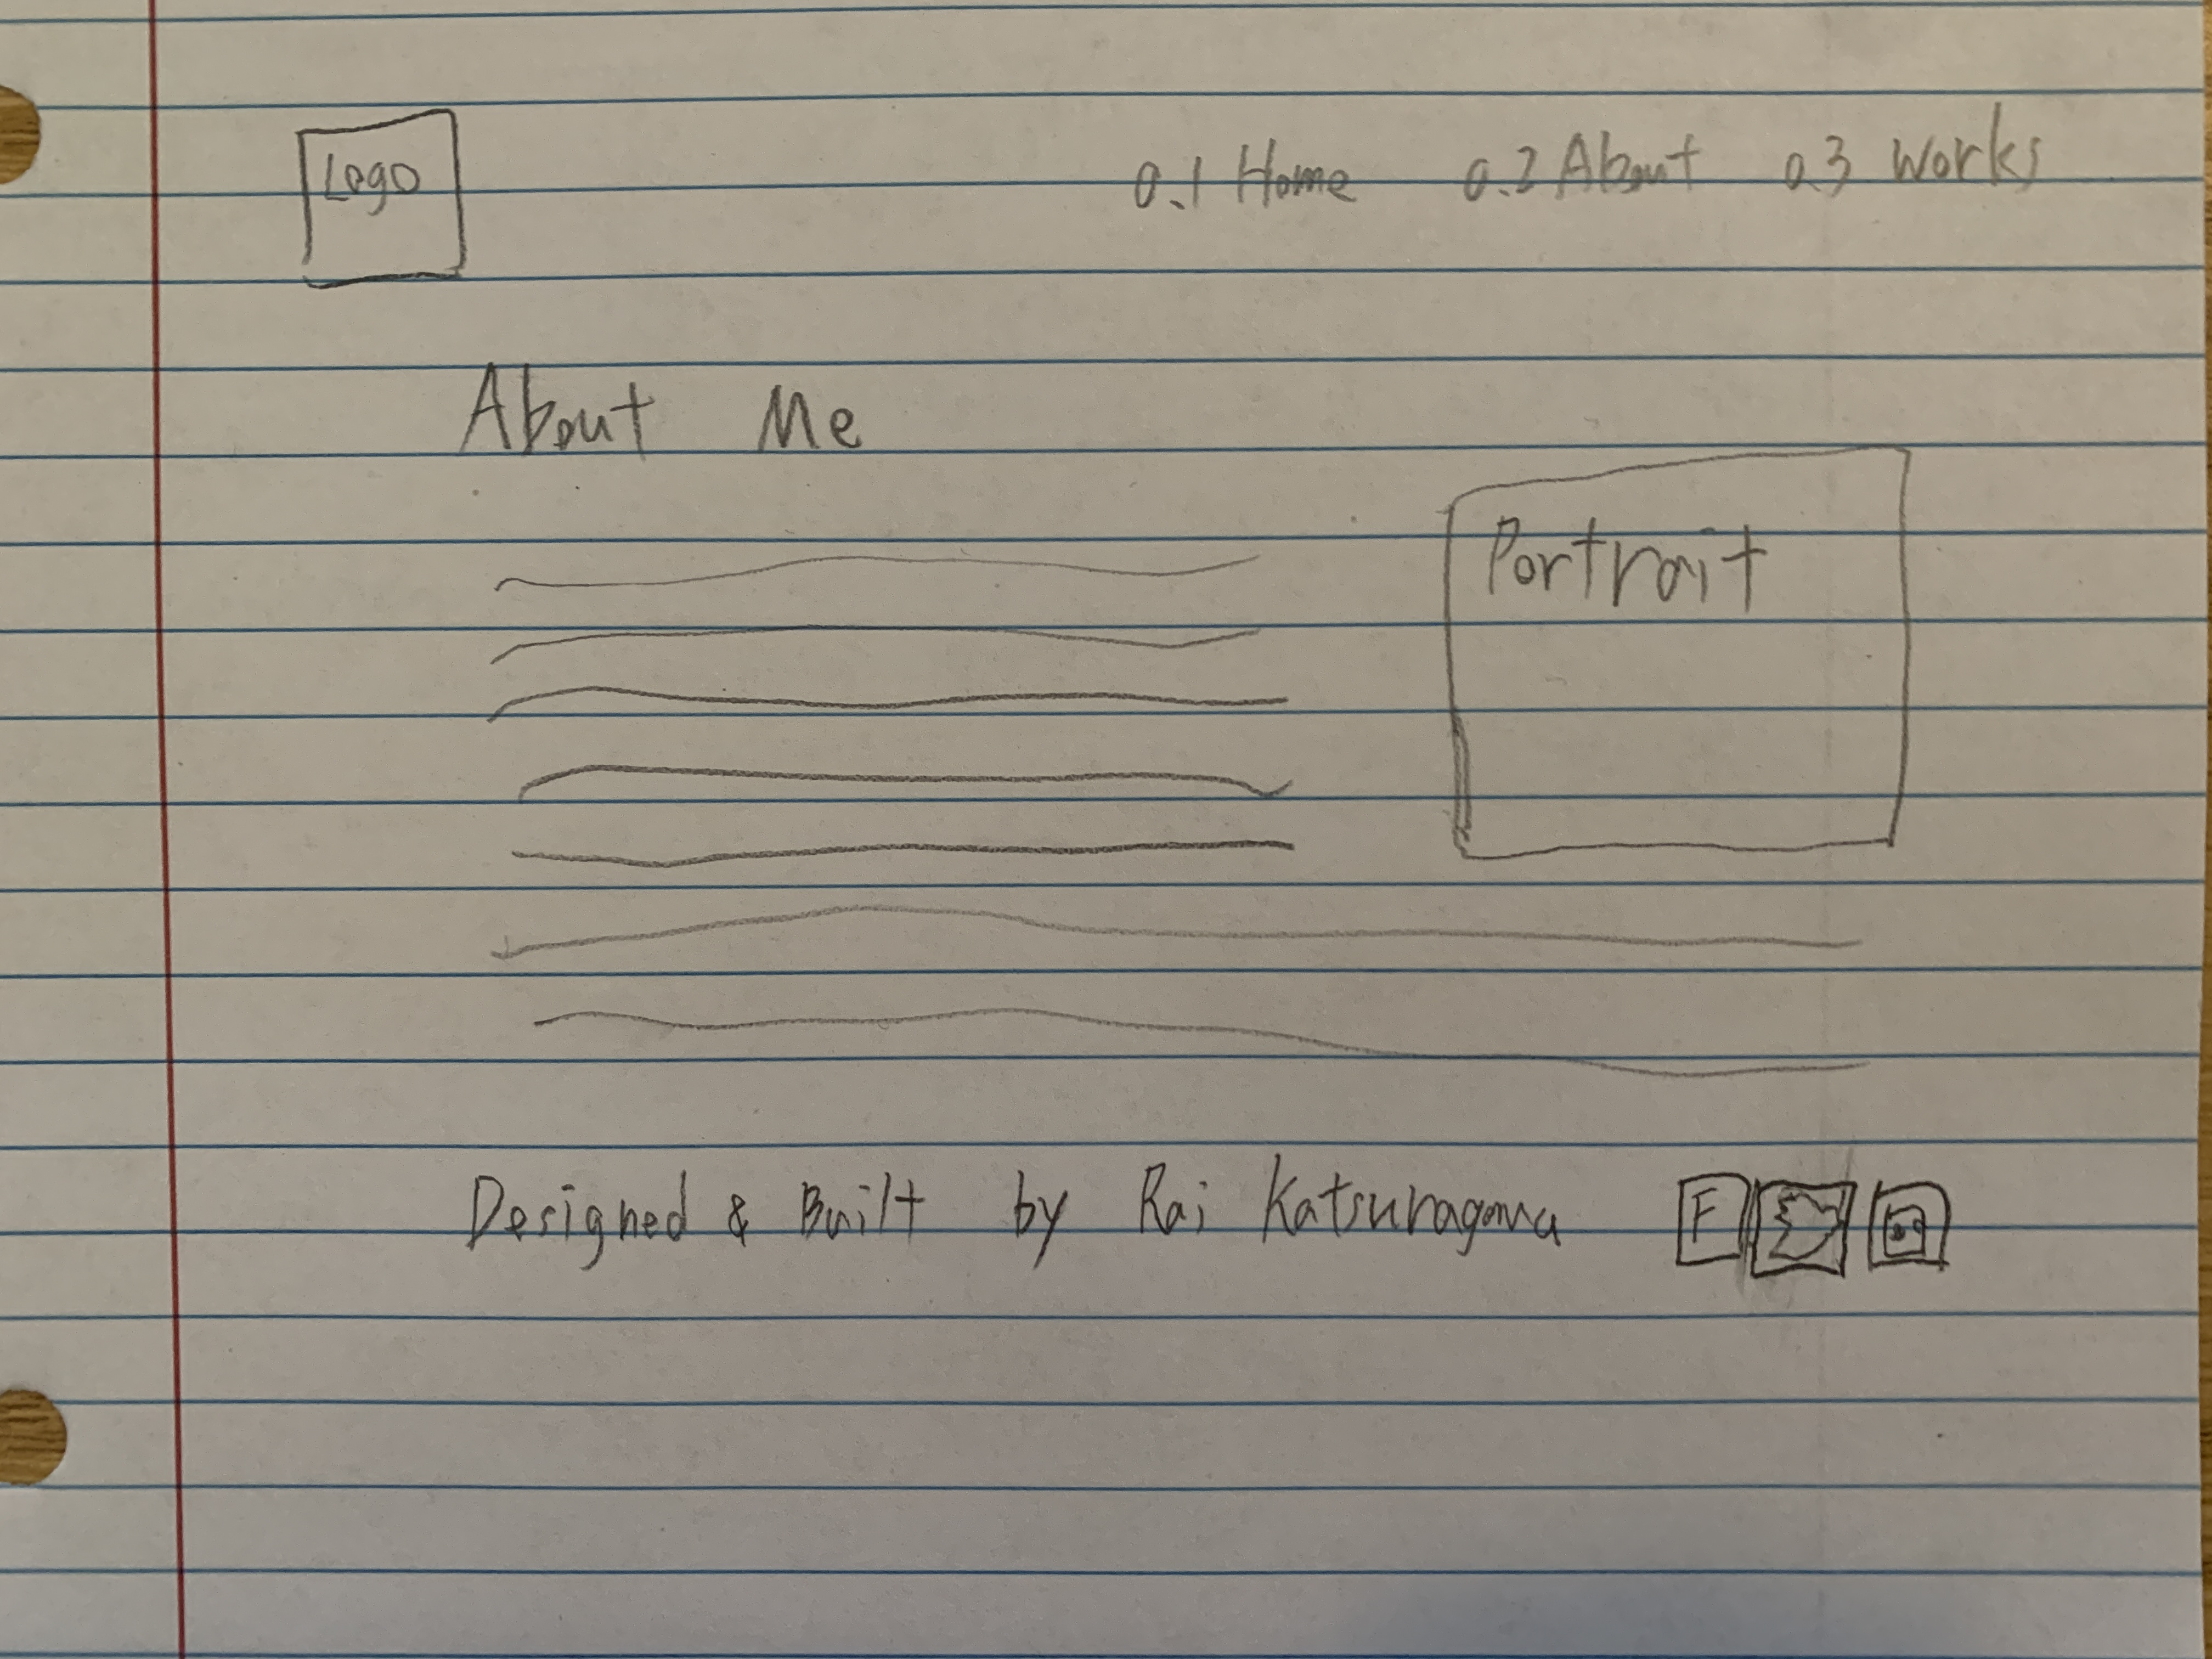 Logo
0.1 Home 0.2 About 0.3 Works
About Me
Portrait
Designed & Built by Rai Katsuragawa
F